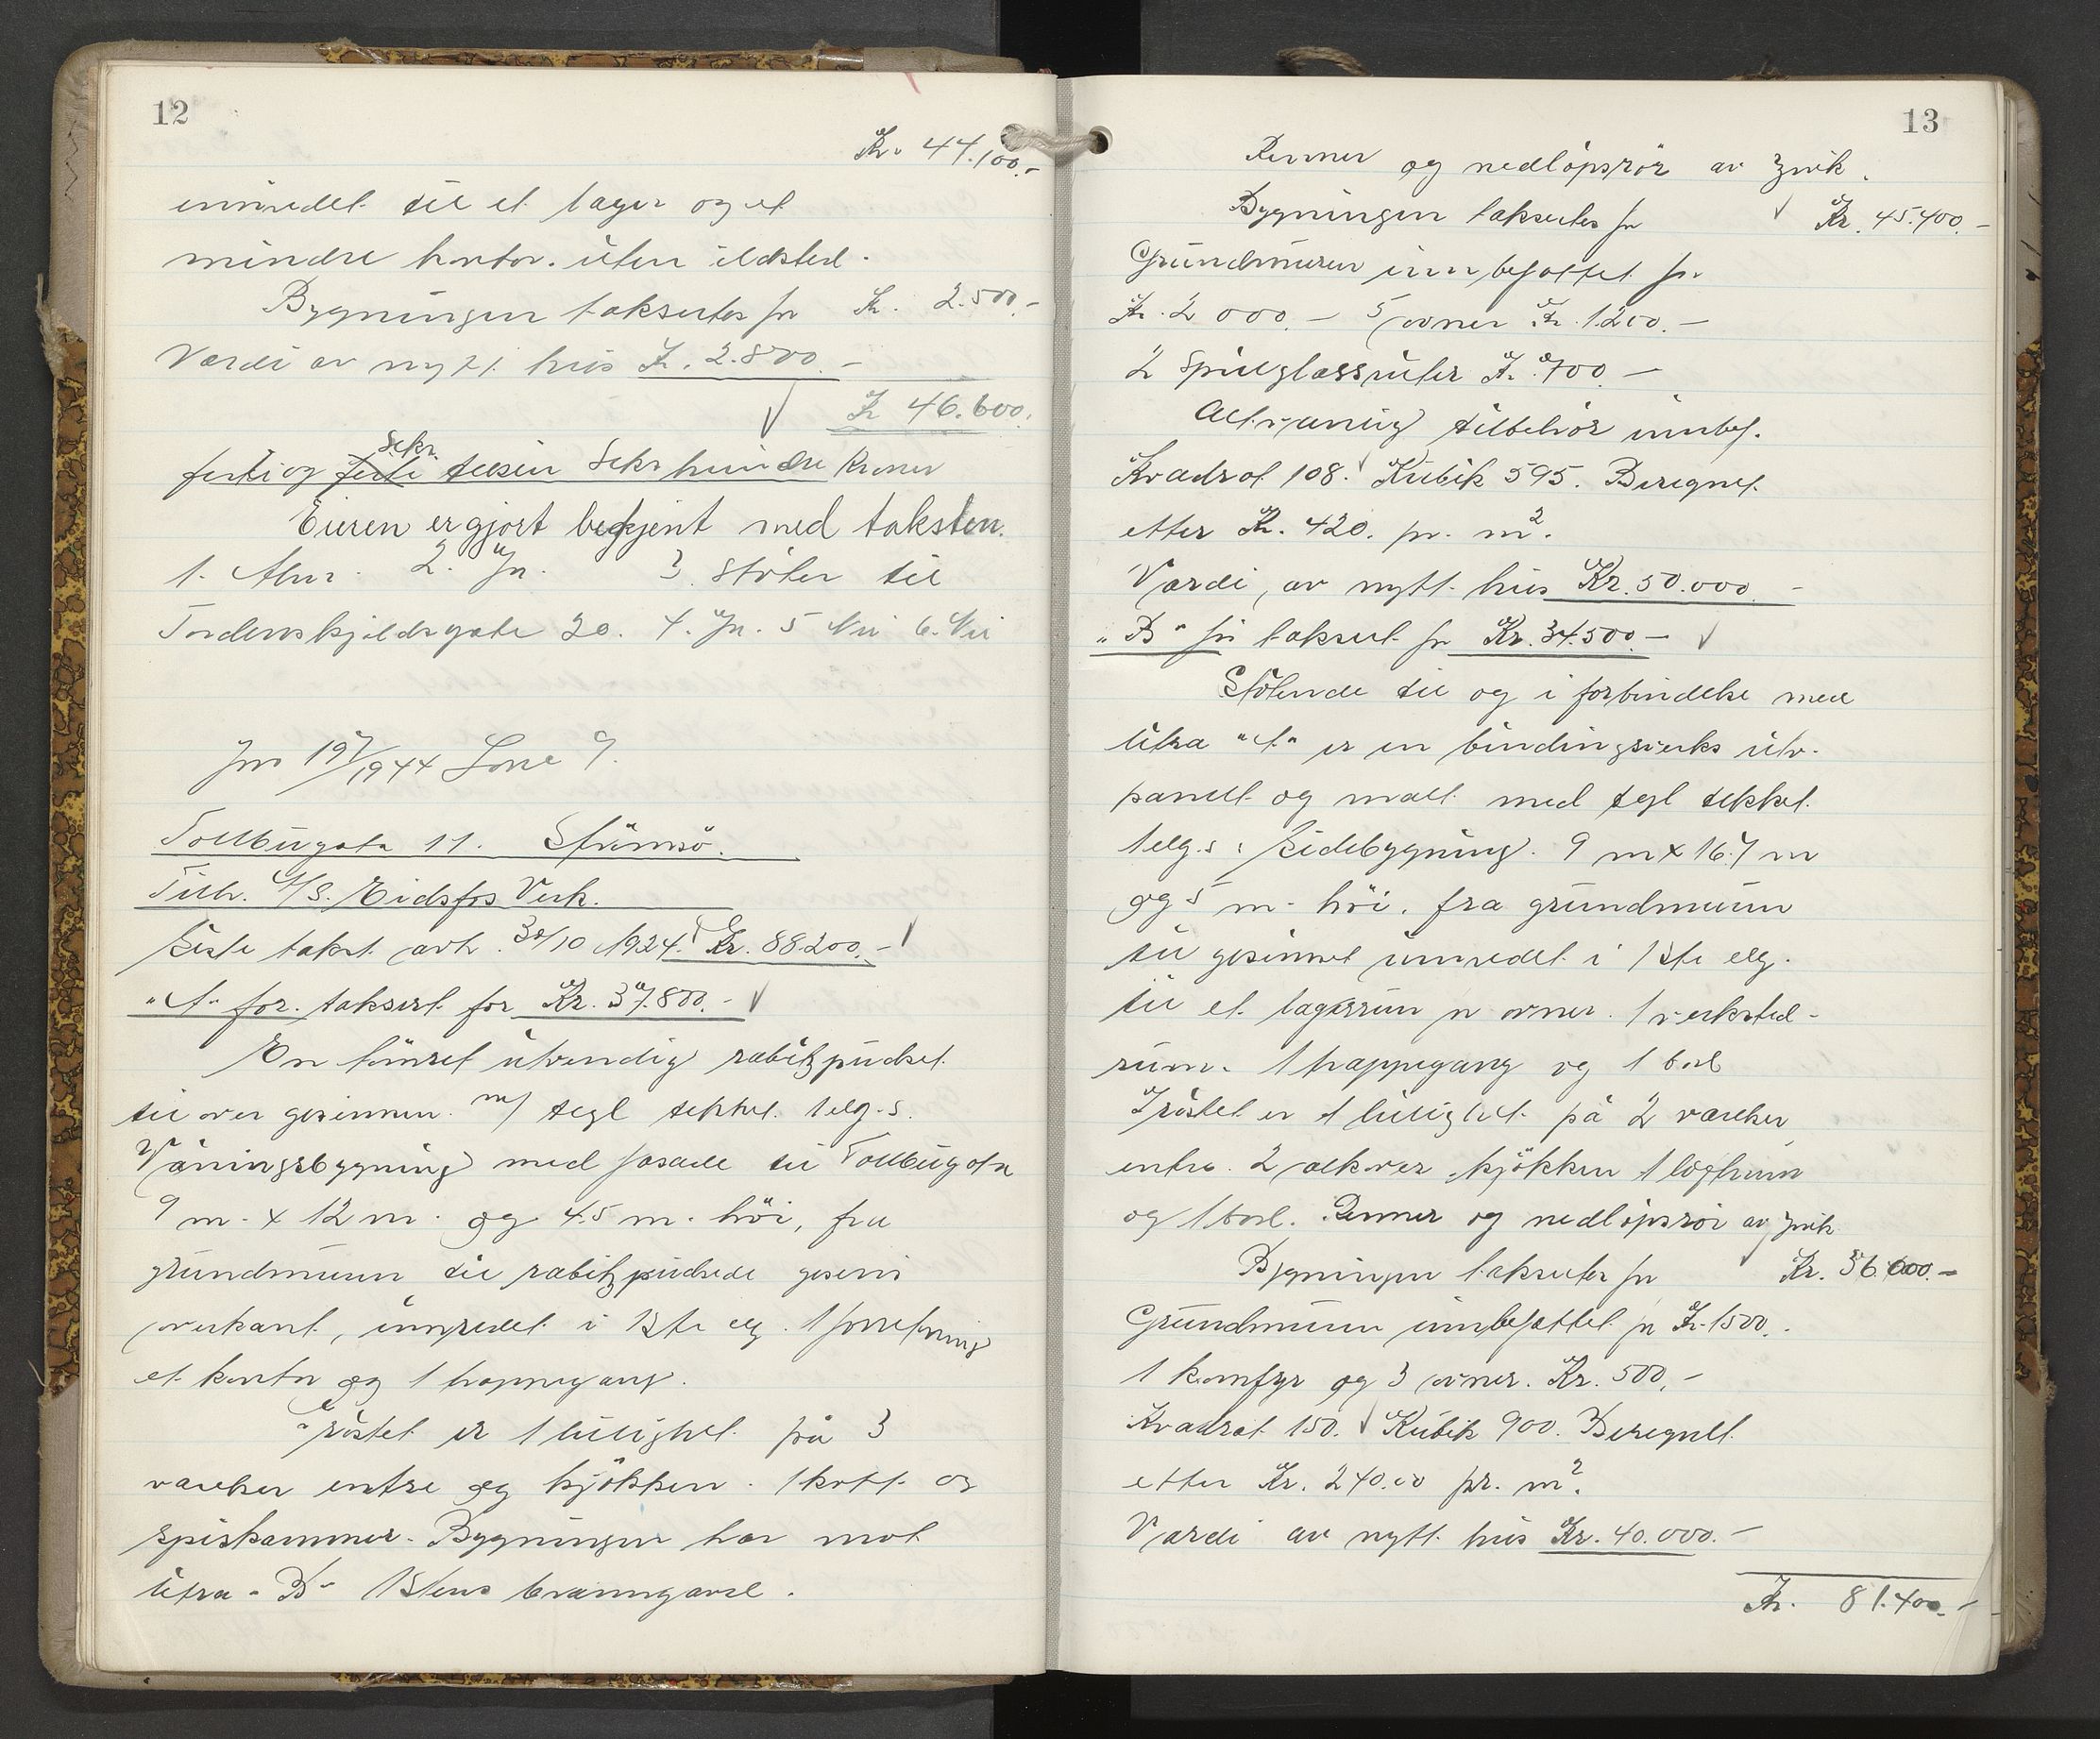 12
Kr. 44.100.-
innredet til et lager og et
mindre kontor. uten ildsted.
Bygningen takseres for Kr. 2.500.-
Verdi av nytt hus Kr. 2.800.-
Kr 46.600.
seks
førti og førti tusen seks hundre Kroner
Eieren er gjort bekjent med taksten.
1. Mur. 2. Jn. 3. Støter til
Tordenskjoldsgate 20. 4. Jn. 5 Nei 6. Nei
1944
Tollbugata 11. Strømsø.
Tilh. A/S. Eidsfos Verk.
Siste takst avh. 30/10 1924. Kr. 88.200.-
"A" før. taksert for Kr. 37.800.-
En tømret utvendig rabitzpudset
til over gesimsen. m/ tegl tekket 1 etg.s.
Våningsbygning med fasade til Tollbugata
9 m. x 12 m. og 4.5 m. høi, fra
grundmuren til rabitzpudsede gesims
overkant, innredet i 1ste etg. 1 forretning
et kontor og 1 trappegang.
I røstet er 1 leilighet på 3
værelser entre og kjøkken. 1 kott og
spiskammer. Bygningen har mot
Litra "B" 1 Stens branngavl.
13
Renner og nedløpsrør av zink.
Bygningen takseres for Kr. 45.400.-
Grundmuren innbefattet for
Kr. 2000.- 5 ovner Kr. 1200.-
2 Speilglassruter Kr. 700.-
Alt vanlig tilbehør innbef.
Kvadrat 108. Kubik 595. Beregnet
etter Kr. 420. pr. m².
Verdi, av nytt hus Kr. 50.000.-
"B" før taksert for Kr. 34.500.-
Støtende til og i forbindelse med
Litra "A" er en bindingsverks utv.
panelt og malt med tegl tekket
1 etg.s: Sidebygning. 9 m x 16.7 m
og 5 m. høi. fra grundmuren
til gesimset innredet i 1ste etg.
til et lagerrum u ovner. 1 verksted-
rum. 1 trappegang og 1 bod
I røstet er 1 leilighet på 2 værelser
entre. 2 alkover kjøkken 1 loftrum
og 1 bod. Renner og nedløpsrør av zink
Bygningen takseres for Kr. 36.000.-
Grundmuren innbefattet for Kr. 1500.
1 komfyr og 3 ovner. Kr. 500.-
Kvadrat 150. Kubik 900. Beregnet
etter Kr. 240.00 pr. m².
Verdi av nytt hus Kr. 40.000.-
Kr. 81.400.-